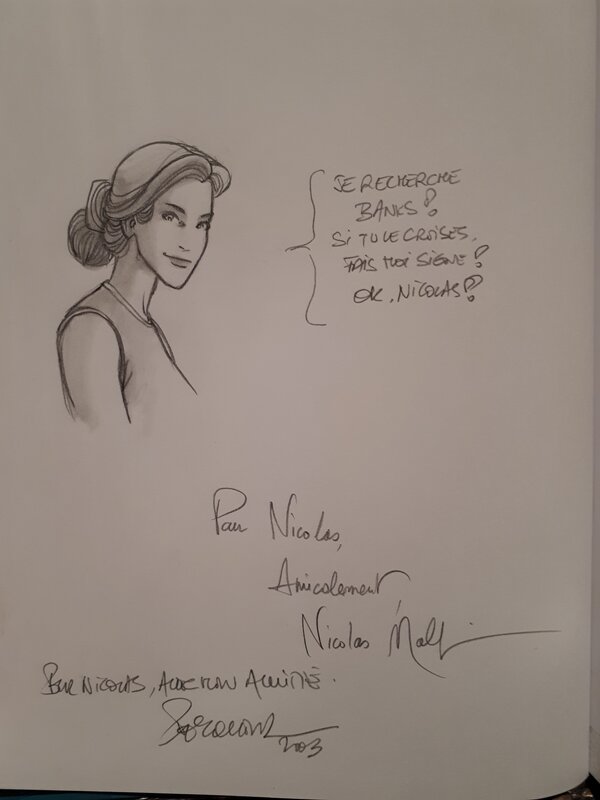 JE RECHERCHE
BANKS !
SI TU LE CROISES,
FAIS MOI SIGNE !
OK, NICOLAS ?
Pour Nicolas,
Amicalement,
Nicolas Malfin
POUR NICOLAS, AVEC MON AMITIÉ.
2003